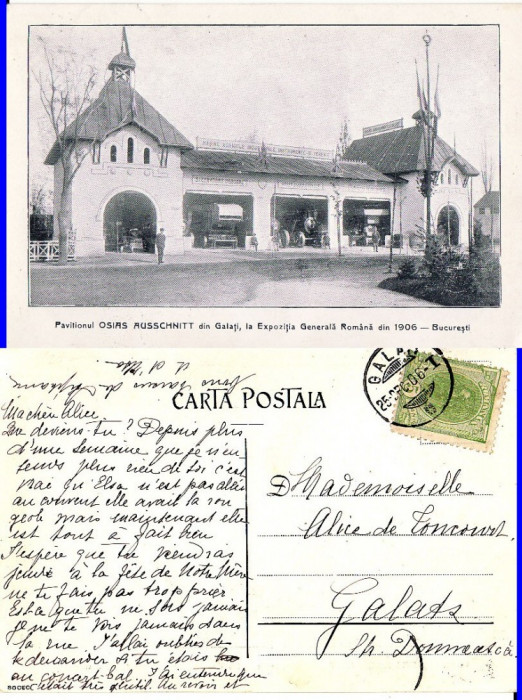 Pavilionul OSIAS AUSSCHNITT din Galați, la Expoziția Generală Română din 1906 — București
CARTA POSTALA
GALAȚI
Ma chère Alice.
Que deviens tu? Depuis plus
d'une semaine que je n'en
tends plus rien de toi c'est
vrai qu'Elsa n'est pas allée
au couvent elle avait la rou
geole mais maintenant elle
est tout à fait bien
J'espère que tu viendras
jeudi à la fête de Notre Mère
ne te fais pas trop prier
Est ce que tu ne sors jamais
je ne te vois jamais dans
la rue. J'allais oublier de
te demander si tu étais
au bal. J'ai entendu que
était très gentil. Au revoir et
D Mademoiselle
Alice de Toncourt.
Galatz
Str. Domnească